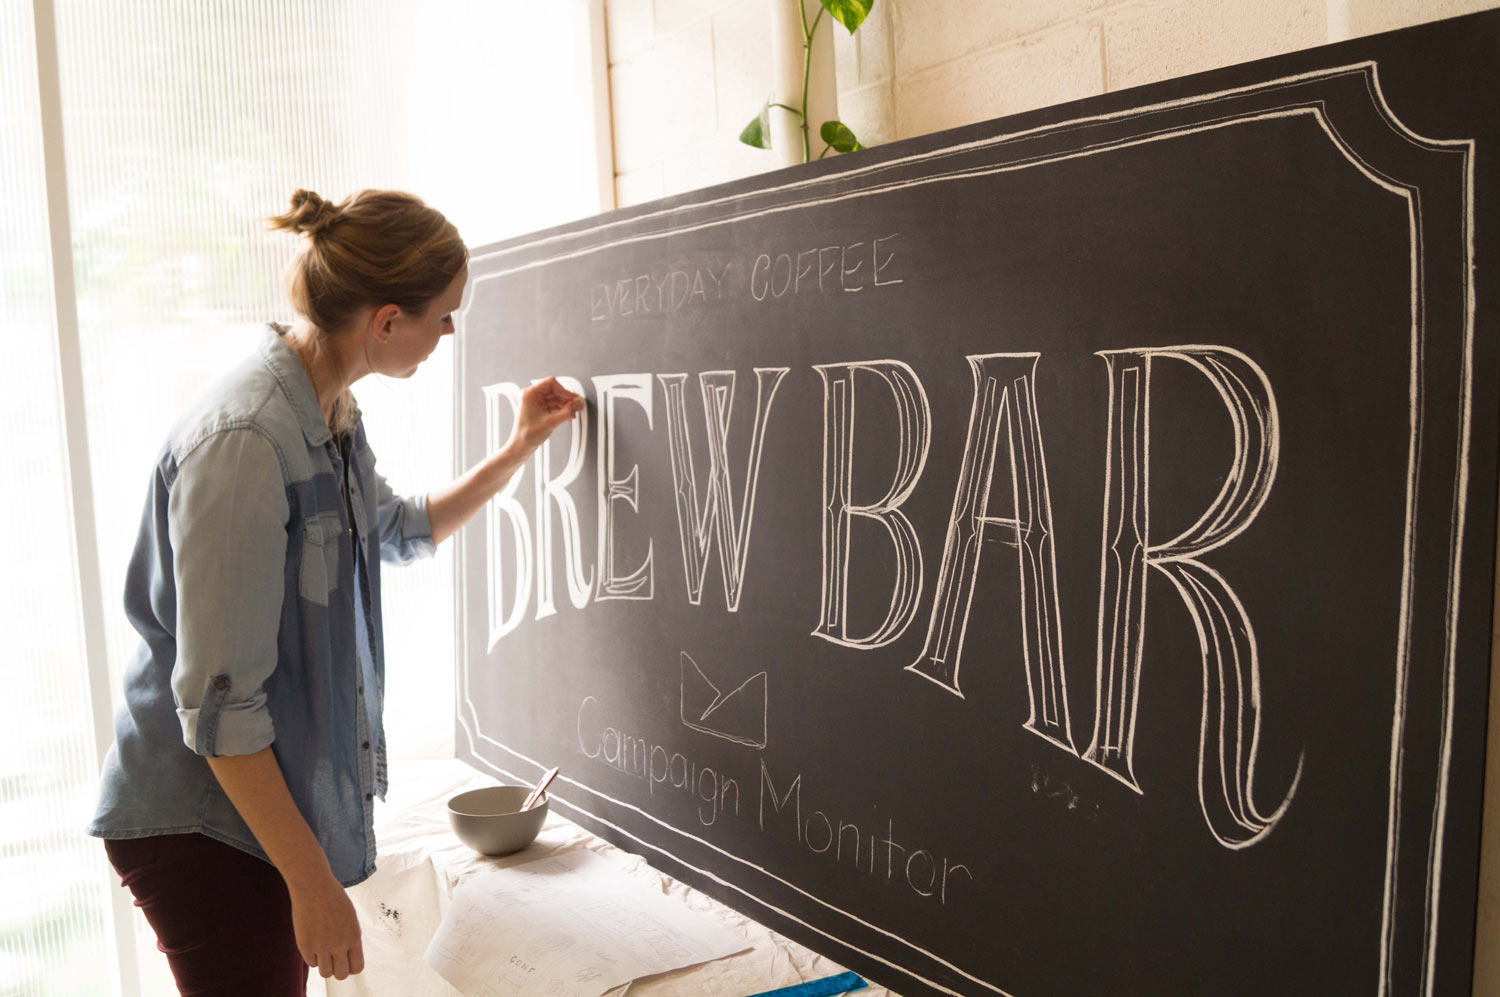 EVERYDAY COFFEE
BREW BAR
Campaign Monitor
CONF